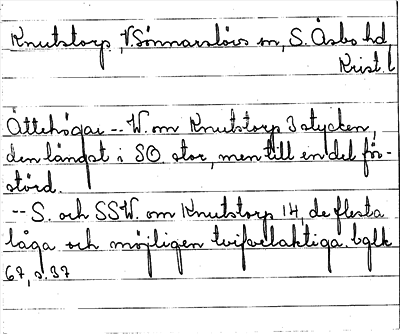 Knutstorp, V. Sönnarslövs sn, S. Åsbo hd,
Krist. l
Ättehögar -- W. om Knutstorp 3 stycken,
den längst i SO stor, men till en del för-
störd.
-- S. och SSW. om Knutstorp 14, de flesta
låga och möjligen tvifvelaktiga. bglk
67, s. 37